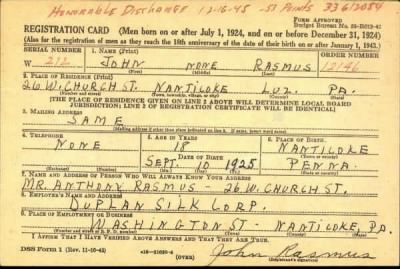 HONORABLE DISCHARGE 12-16-45 - 51 POINTS 33612054
FORM APPROVED
Budget Bureau No. 33-R012-42
REGISTRATION CARD (Men born on or after July 1, 1924, and on or before December 31, 1924)
(Also for the registration of men as they reach the 18th anniversary of the date of their birth on or after January 1, 1943.)
SERIAL NUMBER 1. NAME (Print) ORDER NUMBER
W 212 JOHN NONE RASMUS 12146
(First) (Middle) (Last)
2. PLACE OF RESIDENCE (Print)
26 W. CHURCH ST. NANTILOKE LUZ. PA.
(Number and street) (Town, township, village, or city) (County) (State)
[THE PLACE OF RESIDENCE GIVEN ON LINE 2 ABOVE WILL DETERMINE LOCAL BOARD
JURISDICTION; LINE 2 OF REGISTRATION CERTIFICATE WILL BE IDENTICAL]
3. MAILING ADDRESS
SAME
[Mailing address if other than place indicated on line 2. If same, insert word same]
4. TELEPHONE 5. AGE IN YEARS 6. PLACE OF BIRTH
NONE 18 NANTILOKE
DATE OF BIRTH
SEPT. 10 1925 PENNA.
7. NAME AND ADDRESS OF PERSON WHO WILL ALWAYS KNOW YOUR ADDRESS
MR. ANTHONY RASMUS - 26 W. CHURCH ST.
8. EMPLOYER'S NAME AND ADDRESS
DUPLAN SILK CORP.
9. PLACE OF EMPLOYMENT OR BUSINESS
WASHINGTON ST - NANTILOKE, PA
I AFFIRM THAT I HAVE VERIFIED ABOVE ANSWERS AND THAT THEY ARE TRUE.
DSS Form 1 (Rev. 11-16-42) (OVER) John Rasmus
(Registrant's signature)